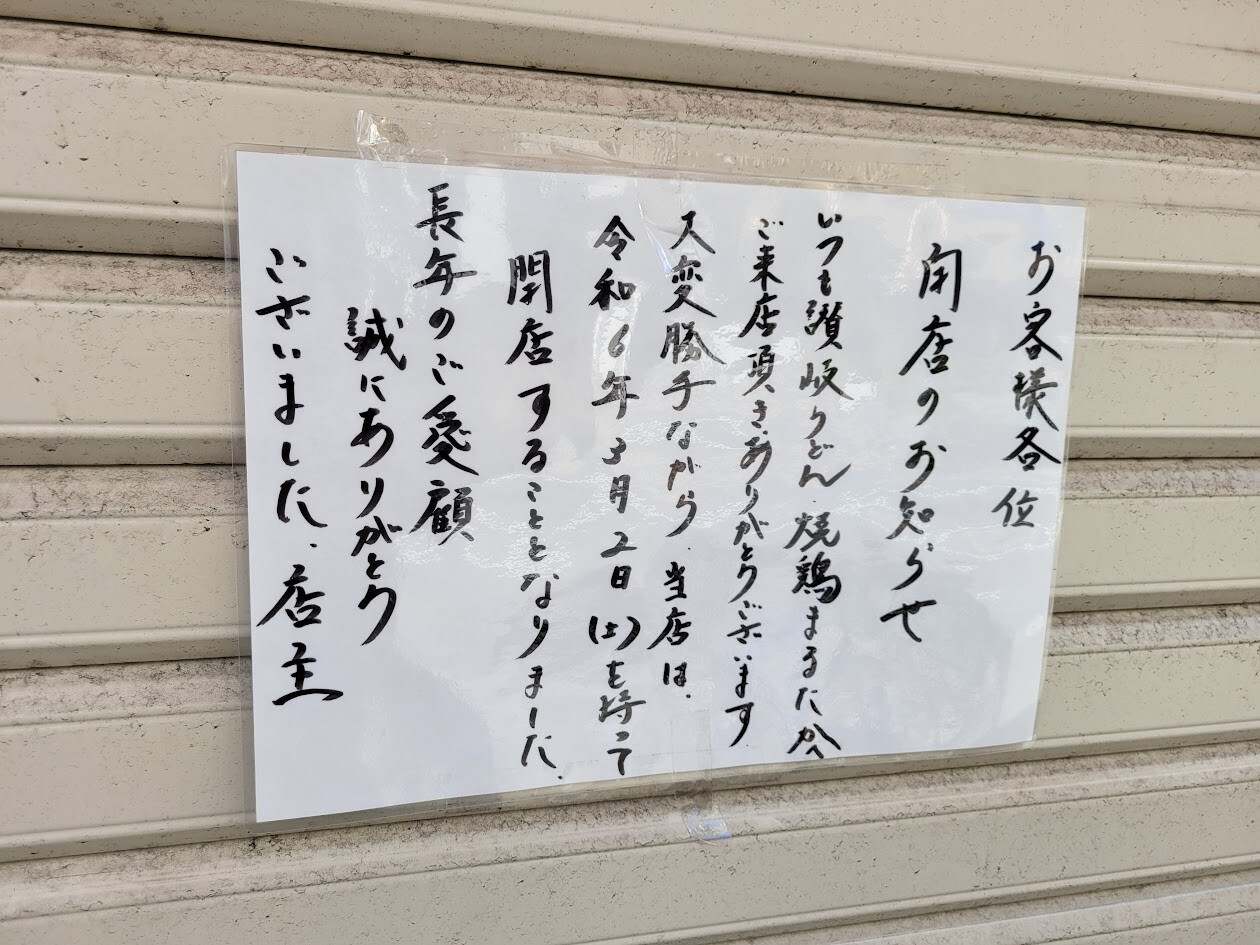 お客様各位
閉店のお知らせ
いつも讃岐うどん、焼鶏まるたかへ
ご来店頂き、ありがとうございます
大変勝手ながら、当店は、
令和6年3月2日(土)を持って
閉店することとなりました、
長年のご愛顧
誠にありがとう
ございました、店主